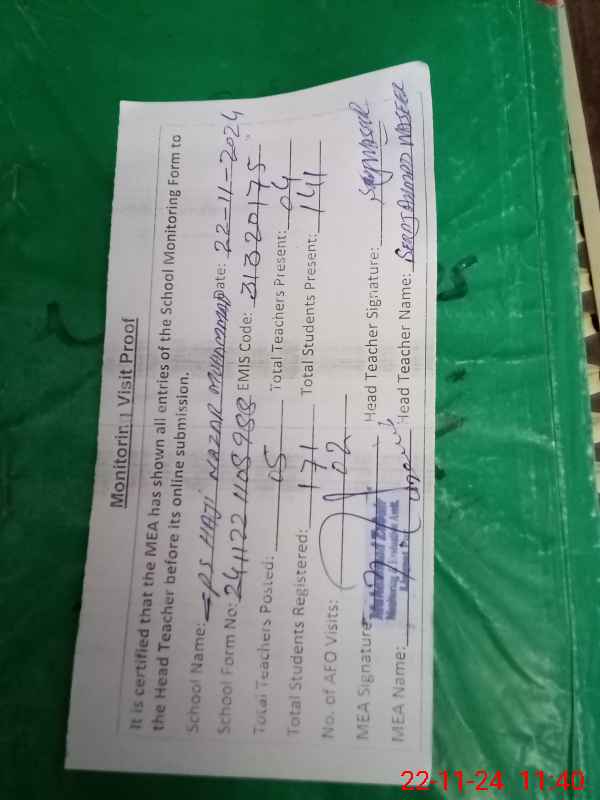 Monitoring Visit Proof
It is certified that the MEA has shown all entries of the School Monitoring Form to
the Head Teacher before its online submission.
School Name: PS HAJI NAZAR MUHAMMAD Date: 22-11-2024
School Form No: 2411221108988 EMIS Code: 31320175
Total Teachers Posted: 05 Total Teachers Present: 04
Total Students Registered: 171 Total Students Present: 141
No. of AFO Visits: 02
MEA Signature Head Teacher Signature:
MEA Name: Head Teacher Name: AHMAD WASEER
22-11-24 11:40